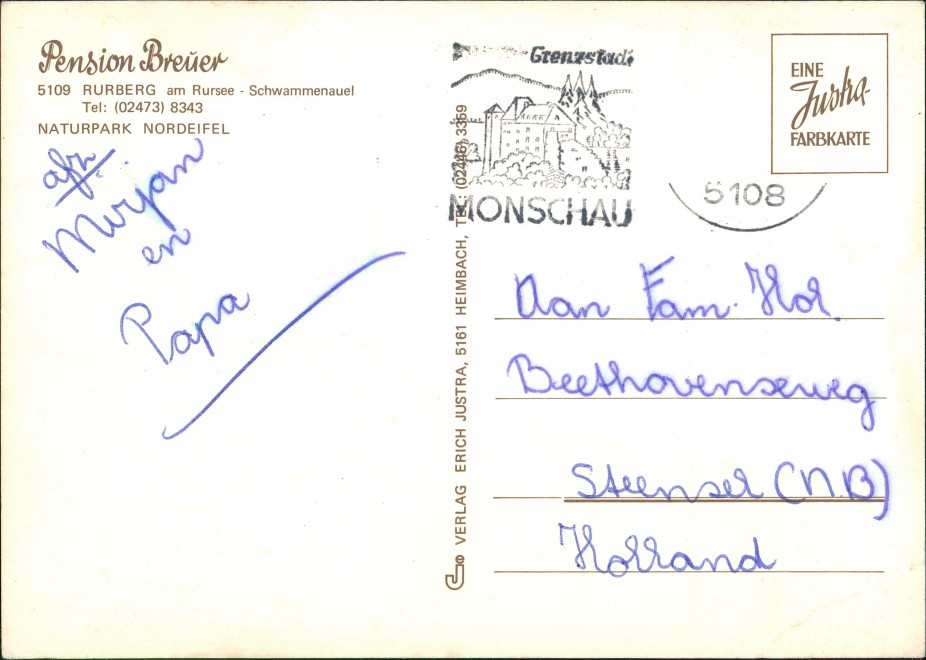 Pension Breuer
5109 RURBERG am Rursee - Schwammenauel
Tel: (02473) 8343
NATURPARK NORDEIFEL
afz.
Mirjan
en
Papa
VERLAG ERICH JUSTRA, 5161 HEIMBACH, TEL.: (02446) 3369
Grenzstadt
MONSCHAU
5108
EINE
Justra-
FARBKARTE
Aan Fam. Hol.
Beethovenseweg
Steensel (N.B)
Holland